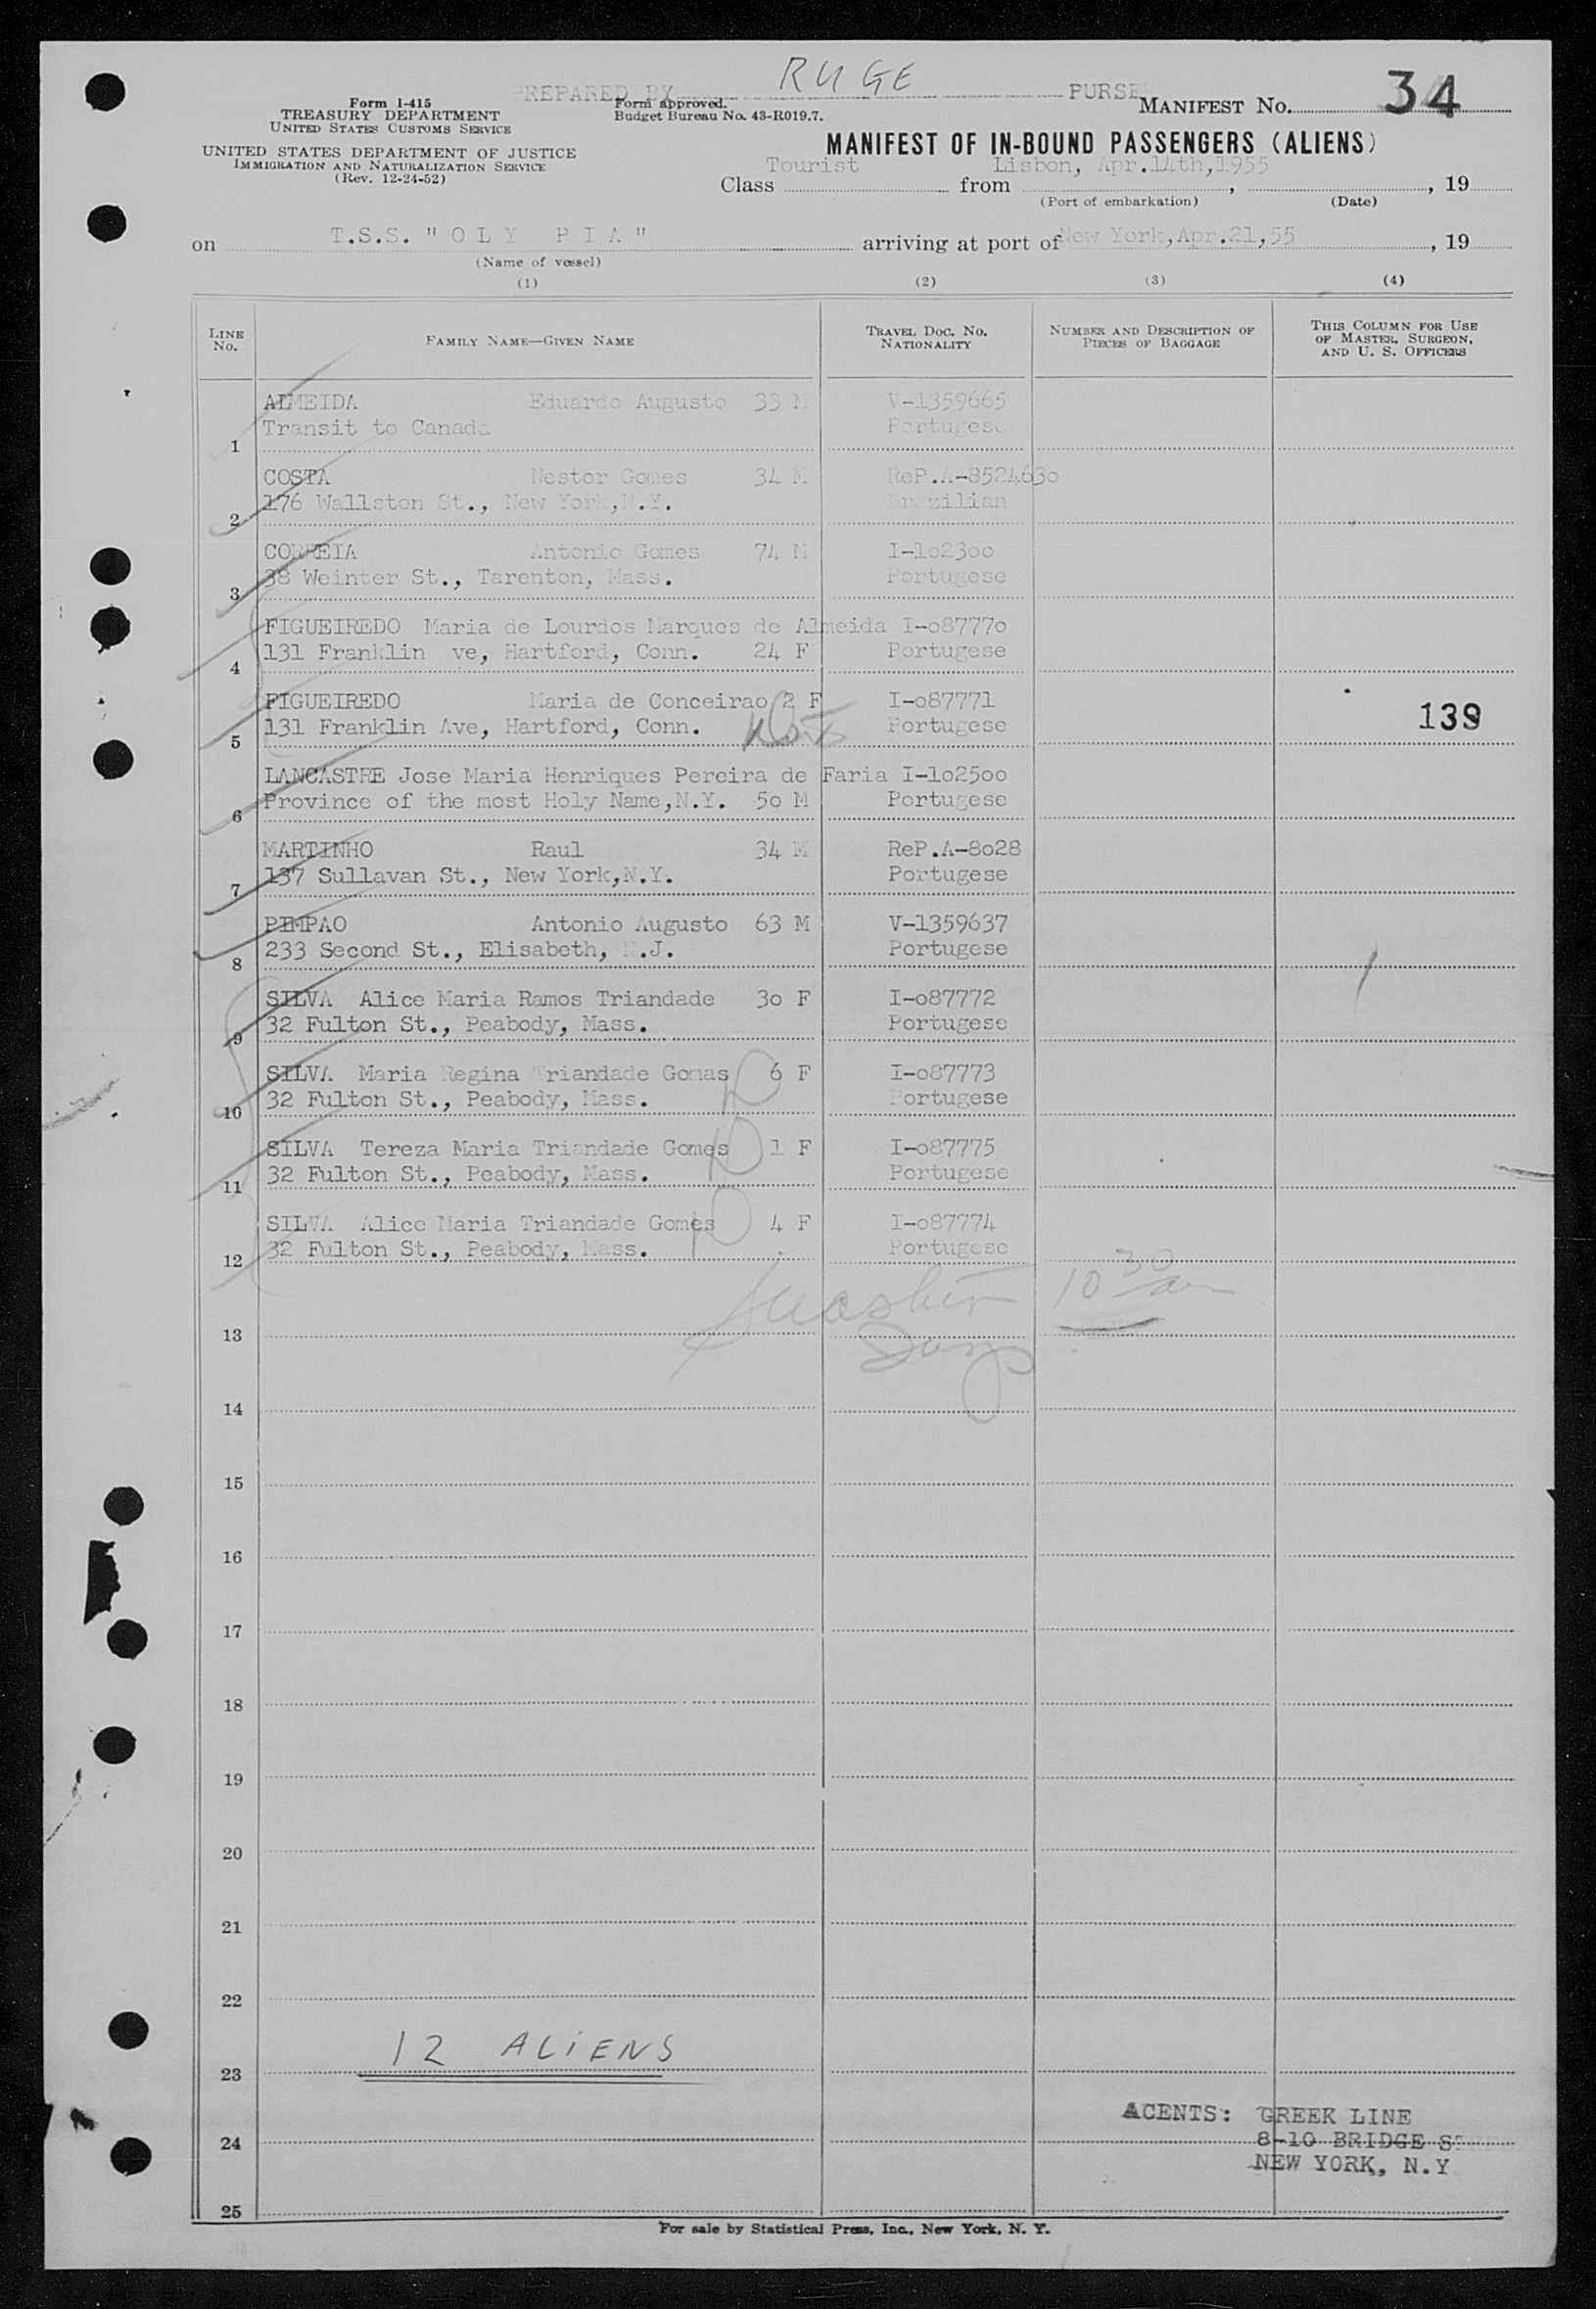 PREPARED BY RUGE PURSE
Form I-415
TREASURY DEPARTMENT
UNITED STATES CUSTOMS SERVICE
Form approved.
Budget Bureau No. 43-R019.7.
MANIFEST No. 34
UNITED STATES DEPARTMENT OF JUSTICE
IMMIGRATION AND NATURALIZATION SERVICE
(Rev. 12-24-52)
MANIFEST OF IN-BOUND PASSENGERS (ALIENS)
Class Tourist from Lisbon, Apr.14th,1955, 19
(Port of embarkation) (Date)
on T.S.S. "OLY PIA" arriving at port of New York,Apr.21,55, 19
(Name of vessel)
(1) (2) (3) (4)
LINE No. FAMILY NAME—GIVEN NAME TRAVEL DOC. No. NATIONALITY NUMBER AND DESCRIPTION OF PIECES OF BAGGAGE THIS COLUMN FOR USE OF MASTER, SURGEON, AND U. S. OFFICERS
ALMEIDA Eduardo Augusto 33 M V-1359665
1 Transit to Canada Portugese
COSTA Nestor Gomes 34 M ReP.A-852463o
2 176 Wallston St., New York,N.Y. Brazilian
CORREIA Antonio Gomes 74 M I-1o23oo
3 38 Weinter St., Tarenton, Mass. Portugese
FIGUEIREDO Maria de Lourdos Marques de Almeida I-o8777o
4 131 Franklin ve, Hartford, Conn. 24 F Portugese
FIGUEIREDO Maria de Conceirao 2 F I-o87771
5 131 Franklin Ave, Hartford, Conn. Portugese 139
LANCASTRE Jose Maria Henriques Pereira de Faria I-1o25oo
6 Province of the most Holy Name,N.Y. 5o M Portugese
MARTINHO Raul 34 M ReP.A-8o28
7 137 Sullavan St., New York,N.Y. Portugese
PIMPAO Antonio Augusto 63 M V-1359637
8 233 Second St., Elisabeth, N.J. Portugese
SILVA Alice Maria Ramos Triandade 3o F I-o87772
9 32 Fulton St., Peabody, Mass. Portugese
SILVA Maria Regina Triandade Gomas 6 F I-o87773
10 32 Fulton St., Peabody, Mass. Portugese
SILVA Tereza Maria Triandade Gomes 1 F I-o87775
11 32 Fulton St., Peabody, Mass. Portugese
SILVA Alice Maria Triandade Gomes 4 F I-o87774
12 32 Fulton St., Peabody, Mass. Portugese
10 30
13
14
15
16
17
18
19
20
21
22
12 ALIENS
23
ACENTS: GREEK LINE
24 8-10 BRIDGE ST
NEW YORK, N.Y
25
For sale by Statistical Press, Inc., New York, N. Y.